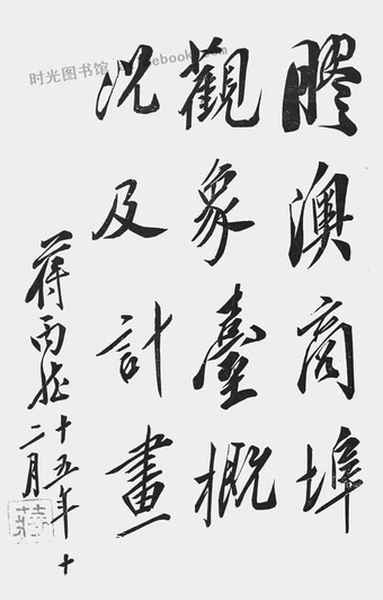 膠澳商埠
觀象臺概
況及計畫
蔣丙然
十五年十
二月
时光图书馆